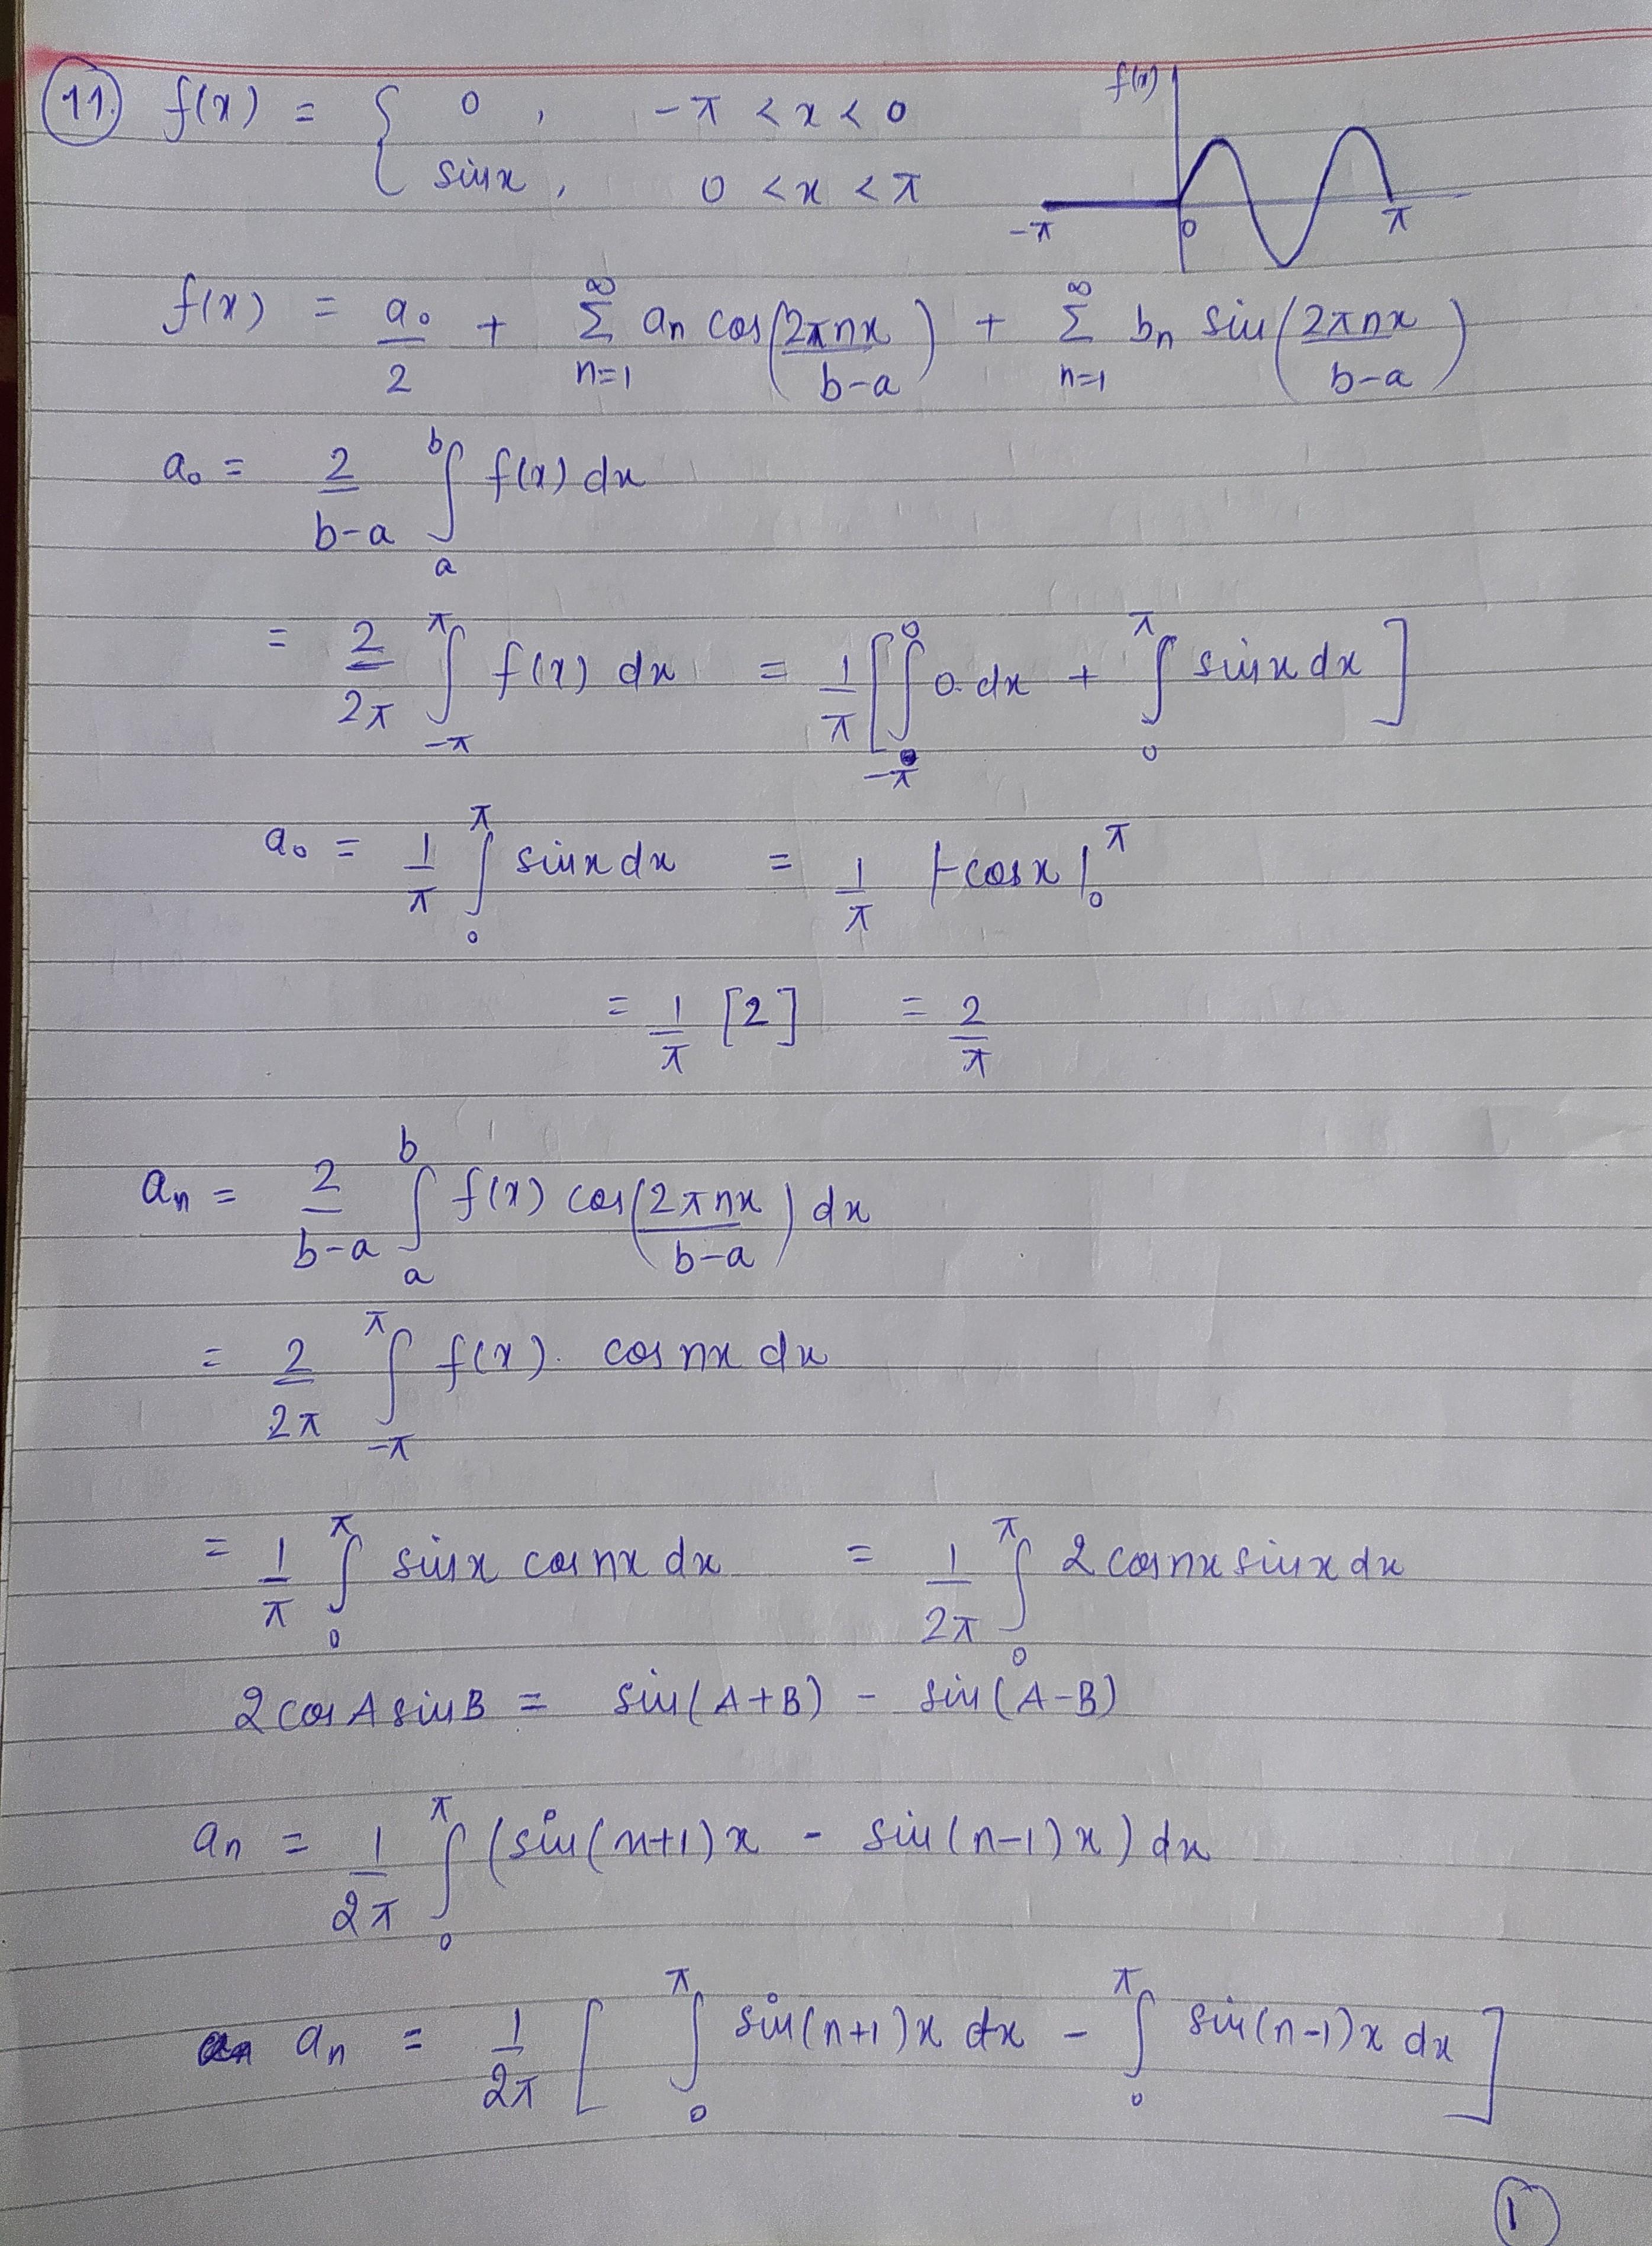 11. f(x) = { 0 , -π < x < 0
sinx , 0 < x < π
f(x)
-π 0 π
f(x) = a₀/2 + ∞Σn=1 aₙ cos(2πnx/b-a) + ∞Σn=1 bₙ sin(2πnx/b-a)
a₀ = 2/b-a ᵇ∫ₐ f(x) dx
= 2/2π ∫_{-π}^{π} f(x) dx = 1/π [∫_{-π}^{0} 0. dx + ∫_{0}^{π} sinx dx]
a₀ = 1/π ∫_{0}^{π} sinx dx = 1/π |-cosx|_{0}^{π}
= 1/π [2] = 2/π
aₙ = 2/b-a ∫_{a}^{b} f(x) cos(2πnx/b-a) dx
= 2/2π ∫_{-π}^{π} f(x). cosnx dx
= 1/π ∫_{0}^{π} sinx cosnx dx = 1/2π ∫_{0}^{π} 2cosnx sinx dx
2cosA sinB = sin(A+B) - sin(A-B)
aₙ = 1/2π ∫_{0}^{π} (sin(n+1)x - sin(n-1)x) dx
aₙ = 1/2π [ ∫_{0}^{π} sin(n+1)x dx - ∫_{0}^{π} sin(n-1)x dx ]
1